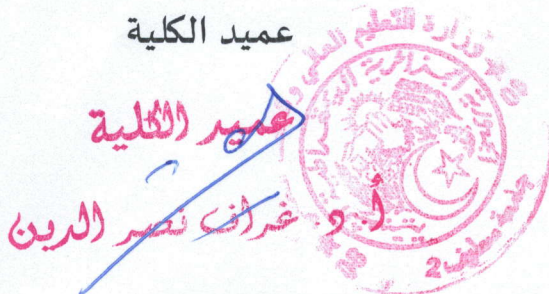 عميد الكلية
عميد الكلية
أ.د. غراف نصر الدين
وزارة التعليم العالي و
الجمهورية الجزائرية الديمقراطية
جامعة سطيف 2